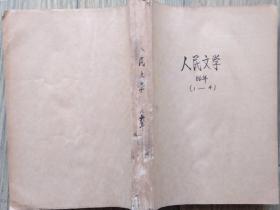 人民文学
86年
(1—4)
人民文学